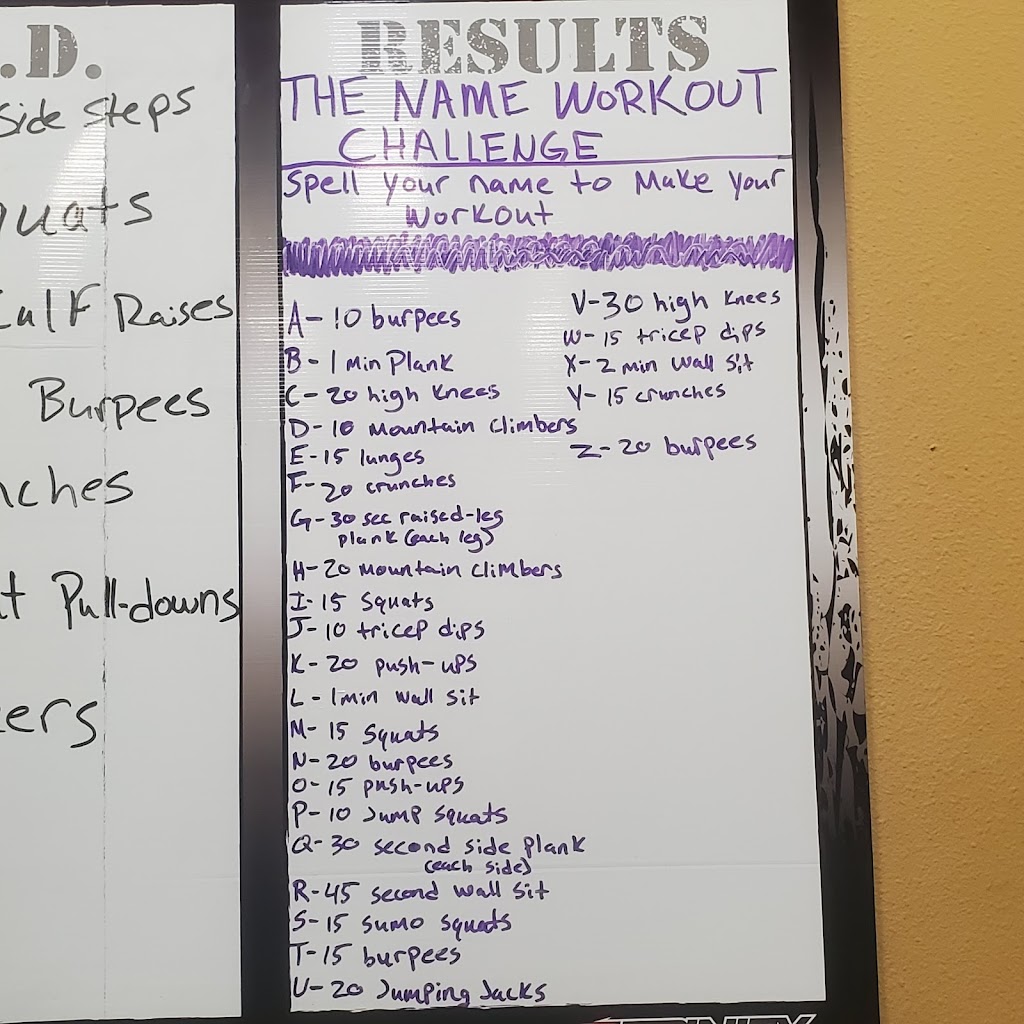 .D.
Side Steps
quats
Calf Raises
Burpees
nches
t Pull-downs
ers
RESULTS
THE NAME WORKOUT
CHALLENGE
Spell your name to Make your
Workout
A-10 burpees
B-1 Min Plank
C-20 high Knees
D-10 Mountain climbers
E-15 lunges
F-20 crunches
G-30 sec raised-leg
plank (each leg)
H-20 Mountain climbers
I-15 Squats
J-10 tricep dips
K-20 push-ups
L-1min wall sit
M-15 Squats
N-20 burpees
O-15 push-ups
P-10 Jump Squats
Q-30 second side plank
(each side)
R-45 second wall sit
S-15 sumo squats
T-15 burpees
U-20 Jumping Jacks
V-30 high Knees
W-15 tricep dips
X-2 min wall sit
Y-15 crunches
Z-20 burpees